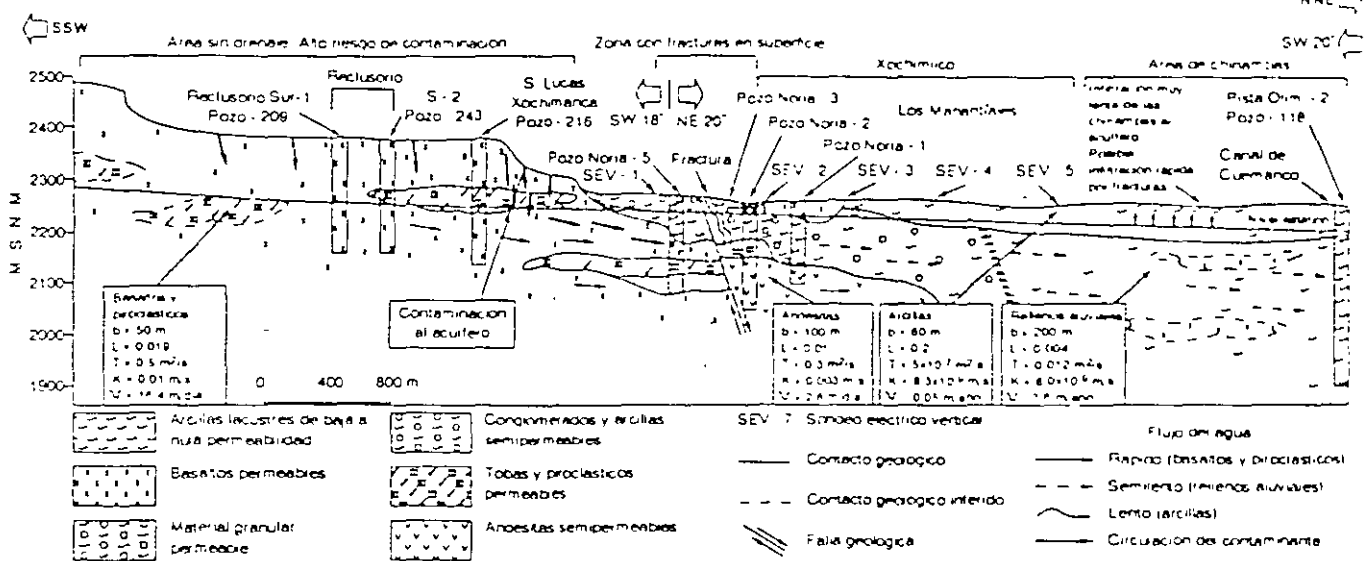 NNE
SSW
SW 20°
Area sin drenaje. Alto riesgo de contaminación
Zona con fracturas en superficie
Xochimilco
Area de chinampas
Reclusorio
Reclusorio Sur-1
Pozo - 209
S - 2
Pozo 243
S. Lucas
Xochimanca
Pozo - 216
SW 18°
NE 20°
Pozo Noria - 5
SEV - 1
Fractura
Pozo Noria - 3
Pozo Noria - 2
Pozo Noria - 1
Los Manantiales
SEV - 2
SEV - 3
SEV - 4
SEV - 5
muy
lenta de las
chinampas al
acuífero
Posible
infiltración rápida
por fracturas
Pista Olim. - 2
Pozo - 118
Canal de
Cuemanco
Nivel estático
M S N M
2500
2400
2300
2200
2100
2000
1900
Basaltos y
piroclásticos
b = 50 m
L = 0.019
T = 0.5 m²/s
K = 0.01 m/s
Contaminación
al acuífero
Andesitas
b = 100 m
L = 0.01
T = 0.3 m²/s
K = 0.003 m/s
Arcillas
b = 60 m
L = 0.2
Rellenos aluviales
b = 200 m
L = 0.004
T = 0.012 m²/s
0 400 800 m
Arcillas lacustres de baja a
nula permeabilidad
Basaltos permeables
Material granular
permeable
Conglomerados y arcillas
semipermeables
Tobas y piroclásticos
permeables
Andesitas semipermeables
SEV - 7 Sondeo eléctrico vertical
Contacto geológico
Contacto geológico inferido
Falla geológica
Flujo del agua
Rápido (basaltos y piroclásticos)
Semilento (rellenos aluviales)
Lento (arcillas)
Circulación del contaminante